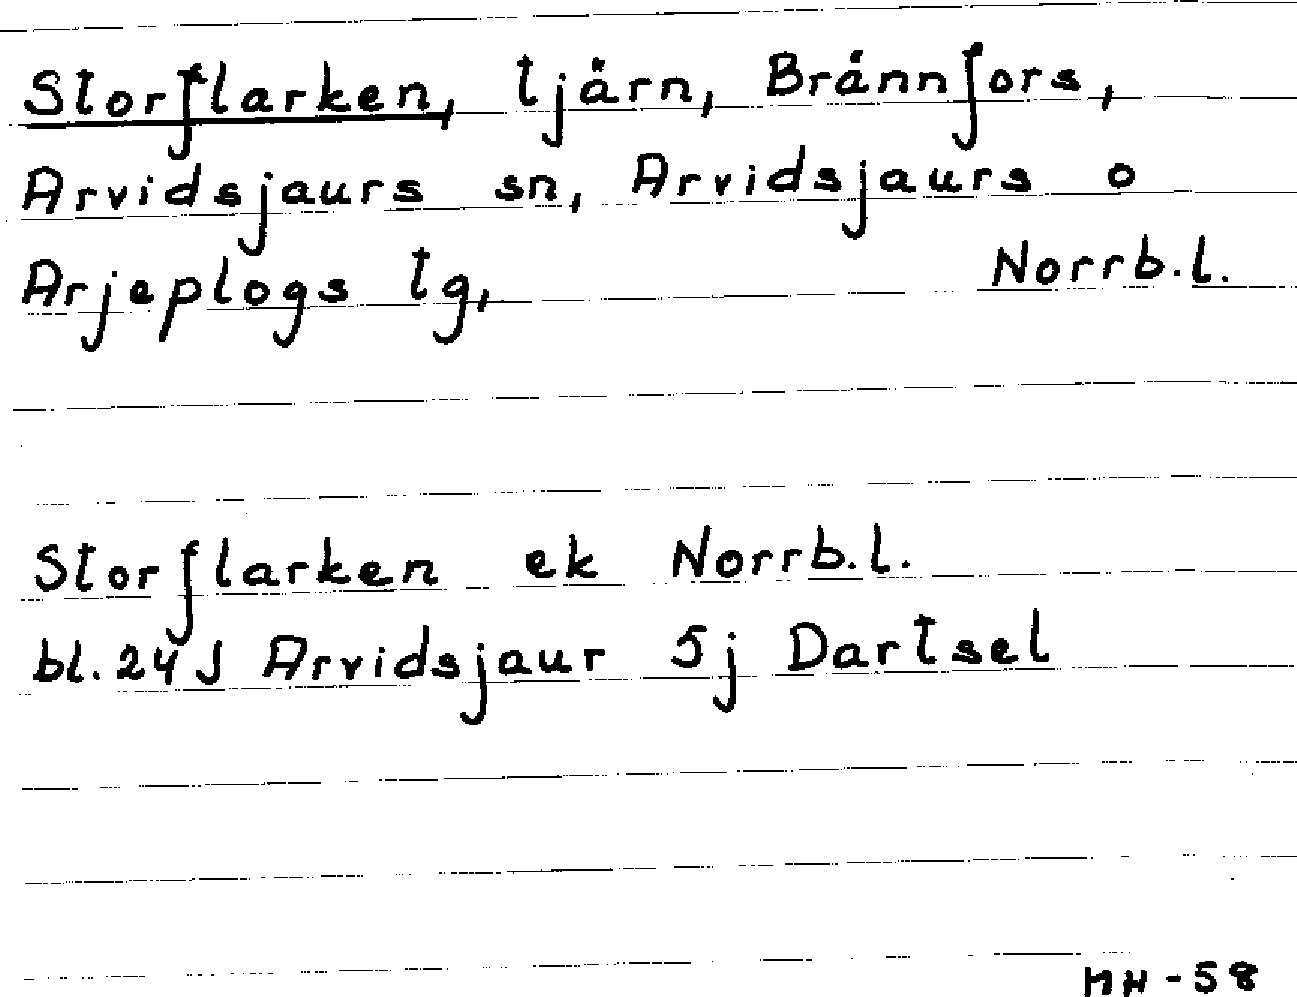 Storflarken, tjärn, Brännfors,
Arvidsjaurs sn, Arvidsjaurs o
Arjeplogs tg, Norrb.l.
Storflarken ek Norrb.l.
bl.24J Arvidsjaur 5j Dartsel
MH-58